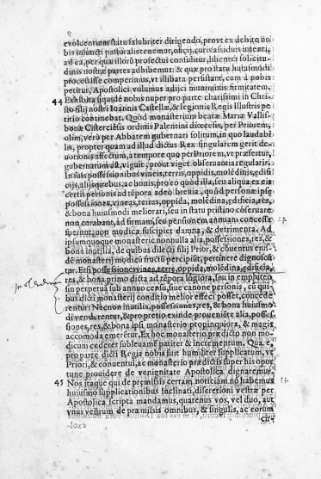 euolcentium statu salubriter dirigendi, prout ex debito no
bis iniuncti pastoralis tenemur, officij, curis assiduis intenti,
ad ea, per quæ illoru profectui consulitur, libenter solicitu-
dinis nostræ partes adhibemus: & quæ pro statu huiusmodi
processisse comperimus, vt illibata persistant, cum à nobis
petitur, Apostolici volumus adijci muniminis firmitatem.
44 Exhibita siquidē nobis nuper pro parte charissimi in Chri-
sto filij nostri Ioannis Castellæ, & legionis Regis illustris pe
titio continebat. Quòd monasterium beatæ Mariæ
bonæ Cisterciēsis ordinis Palentinæ diocesis, per Priorem,
olim, verò per Abbatem gubernari solitum, in quo laudabi-
li, propter quam ad illud dictus Rex singularem gerit de-
uotionis affectum, à tempore quo per Priorem, vt præfertur,
gubernatum est, viguit, prout viget obseruantia regularis.
in suis possessionibus vineis, terris, oppidis, molēdinis, ædi
ficijs, alijsque bonis, pro eo quòd illa, seu aliqua ex eis
certis personis ad tēpora
possessiones, vineas, terras, oppida, molēdina, ædificia,
& bona huiusmodi meliorari, seu in statu pristino obseruare
non curabant, ad firmam, seu pensionem annuam concesse
fuerunt, non modica suscipit damna, & detrimenta. Ad
ipsumque monasterium nonnulla alia, possessiones, res, &
bona inutilia, de quibus
de monasterij modici fructus percipiūt, pertinere dignoscū
tur. Et si possessiones, vineæ, terræ, oppida, molēdina, ædificia,
res, & bona primo dicta ad tēpora longiora, seu in emphiteu
sin perpetuā sub annuo censu, siue canone personis, ex qui-
bus dicti monasterij conditio melior effici posset, concede
rentur: Necnon inutilia, possessiones, res, & bona huiusmo
di venderentur, & pro pretio exinde proueniēte alia, posses-
siones, res, & bona ipsi monasterio propinquiora, & magis
accomoda emerētur. Ex hoc monasterio prædicto non mo-
dicum cederet subleuamē pariter & incrementum. Quare,
pro parte dicti Regis nobis fuit humiliter supplicatum, vt
Priori, & conuentui, ac monasterio prædictis super his opor
tune prouidere de benignitate Apostolica dignaremur.
45 Nos itaque qui de præmissis certam notitiam nō habemus
huiusmo supplicationibus inclinati, discretioni vestræ per
Apostolica scripta mandamus, quatenus vos, vel duo, aut
vnus vestrum de præmissis omnibus, & singulis, ac eorum